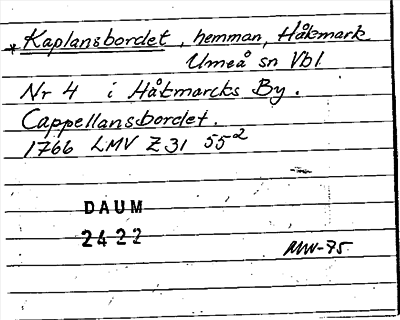 *Kaplansbordet, hemman, Håkmark
Umeå sn Vbl.
Nr 4 i Håkmarcks By.
Cappellansbordet.
1766 LMV Z31 55²
DAUM
2422
MW-75